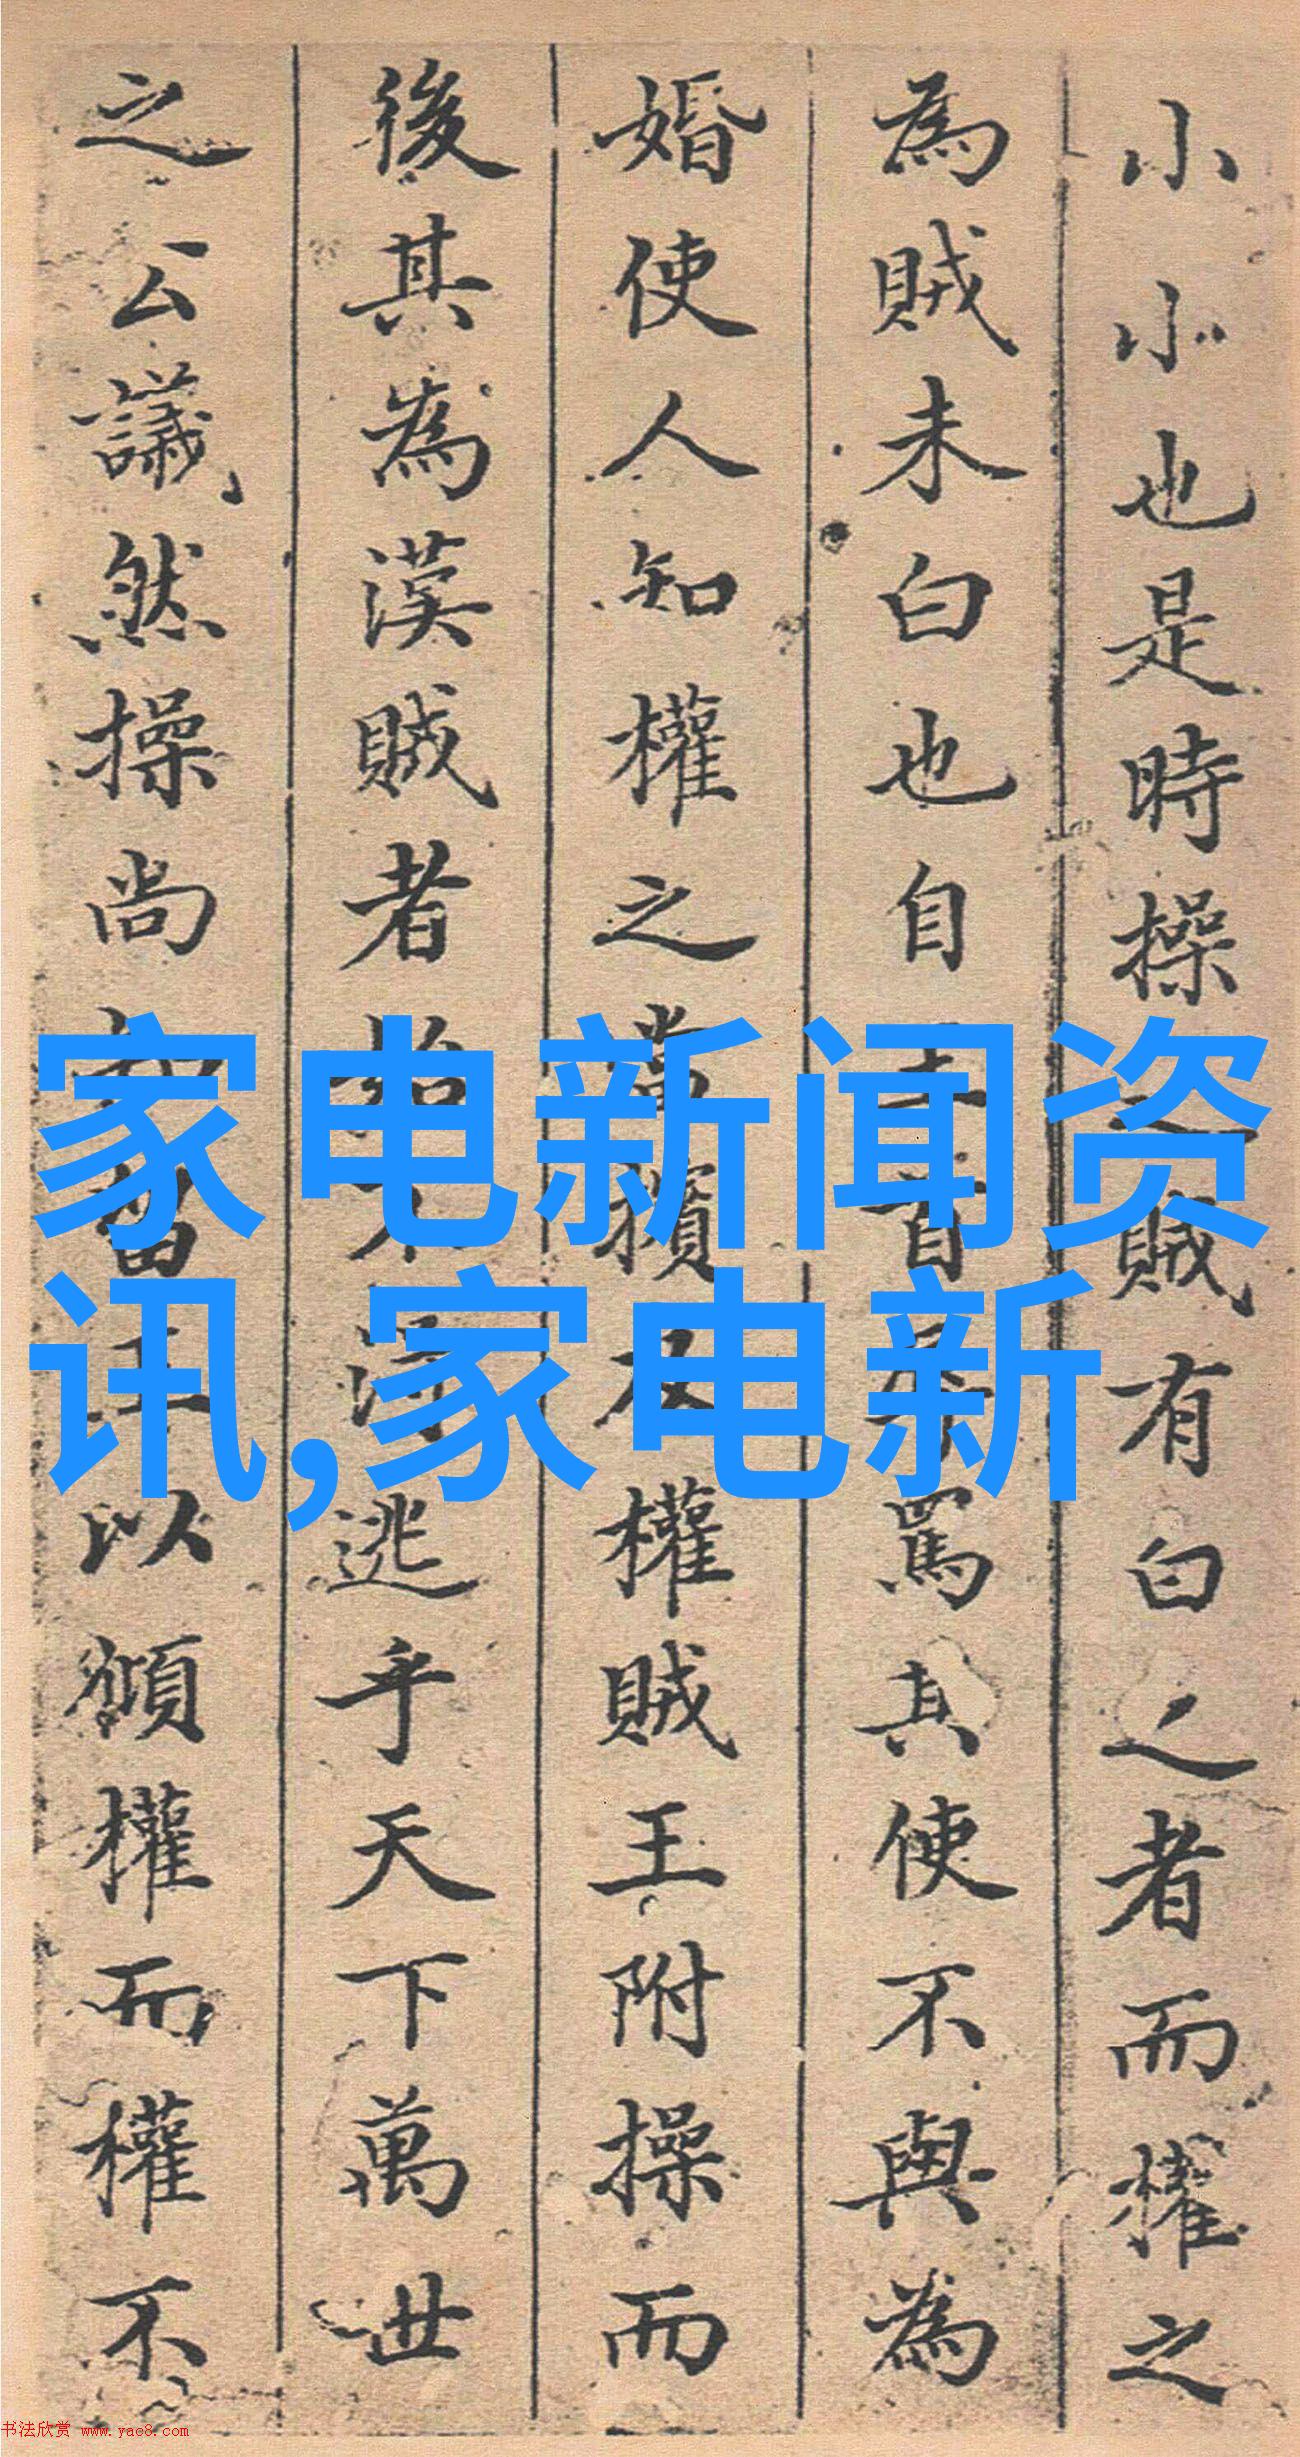 小小也是時操之賊有白之者而權之
為賊未白也自首罵其使不與為
婚使人知權之當擯及權賊王附操而
後其為漢賊者不逃乎天下萬世
之公議然操尚留王以權而權不
家电新闻资
讯,家电新
书法欣赏 www.yac8.com